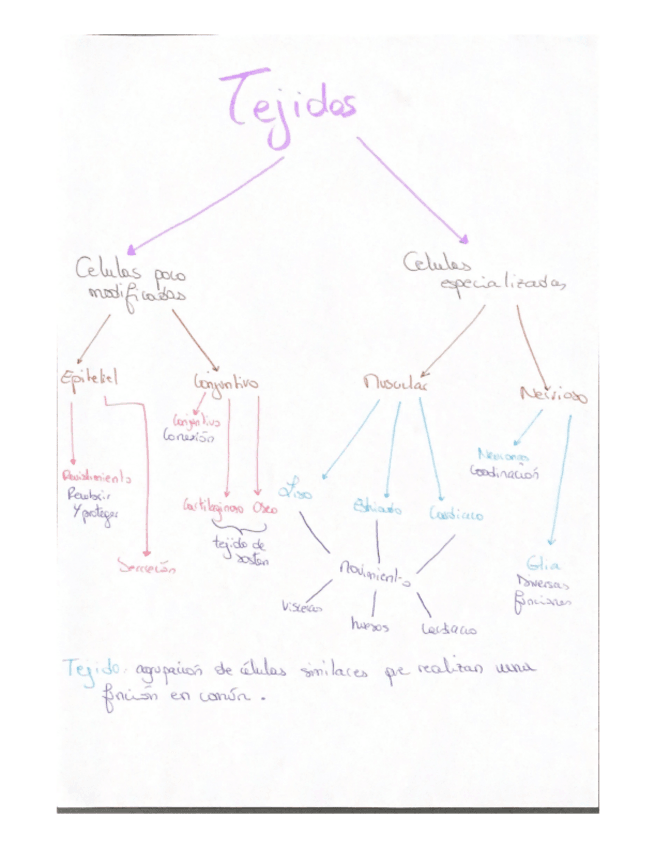 Tejidos
Celulas poco
modificadas
Celulas
especializadas
Epitelial
Conjuntivo
Muscular
Nervioso
Conjuntivo
Conexión
Revestimiento
Recubrir
y proteger
Secreción
Cartilaginoso Oseo
tejido de
sosten
Liso
Estriado
Cardiaco
Movimiento
Visceras
huesos
Cardiaco
Neuronas
Coordinación
Glia
Diversas
funciones
Tejido: agrupación de células similares que realizan una
función en común.